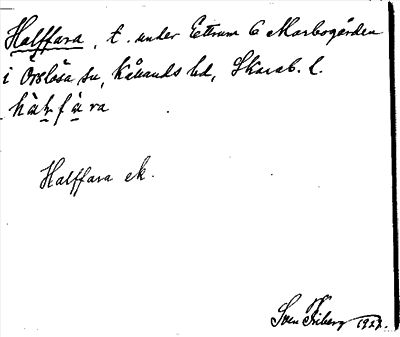 Halffara, t. under Ettrum 6 Marbogården
i Örslösa sn, Kållands hd, Skarab. l.
Halffara ek.
Sven Friberg 1927.